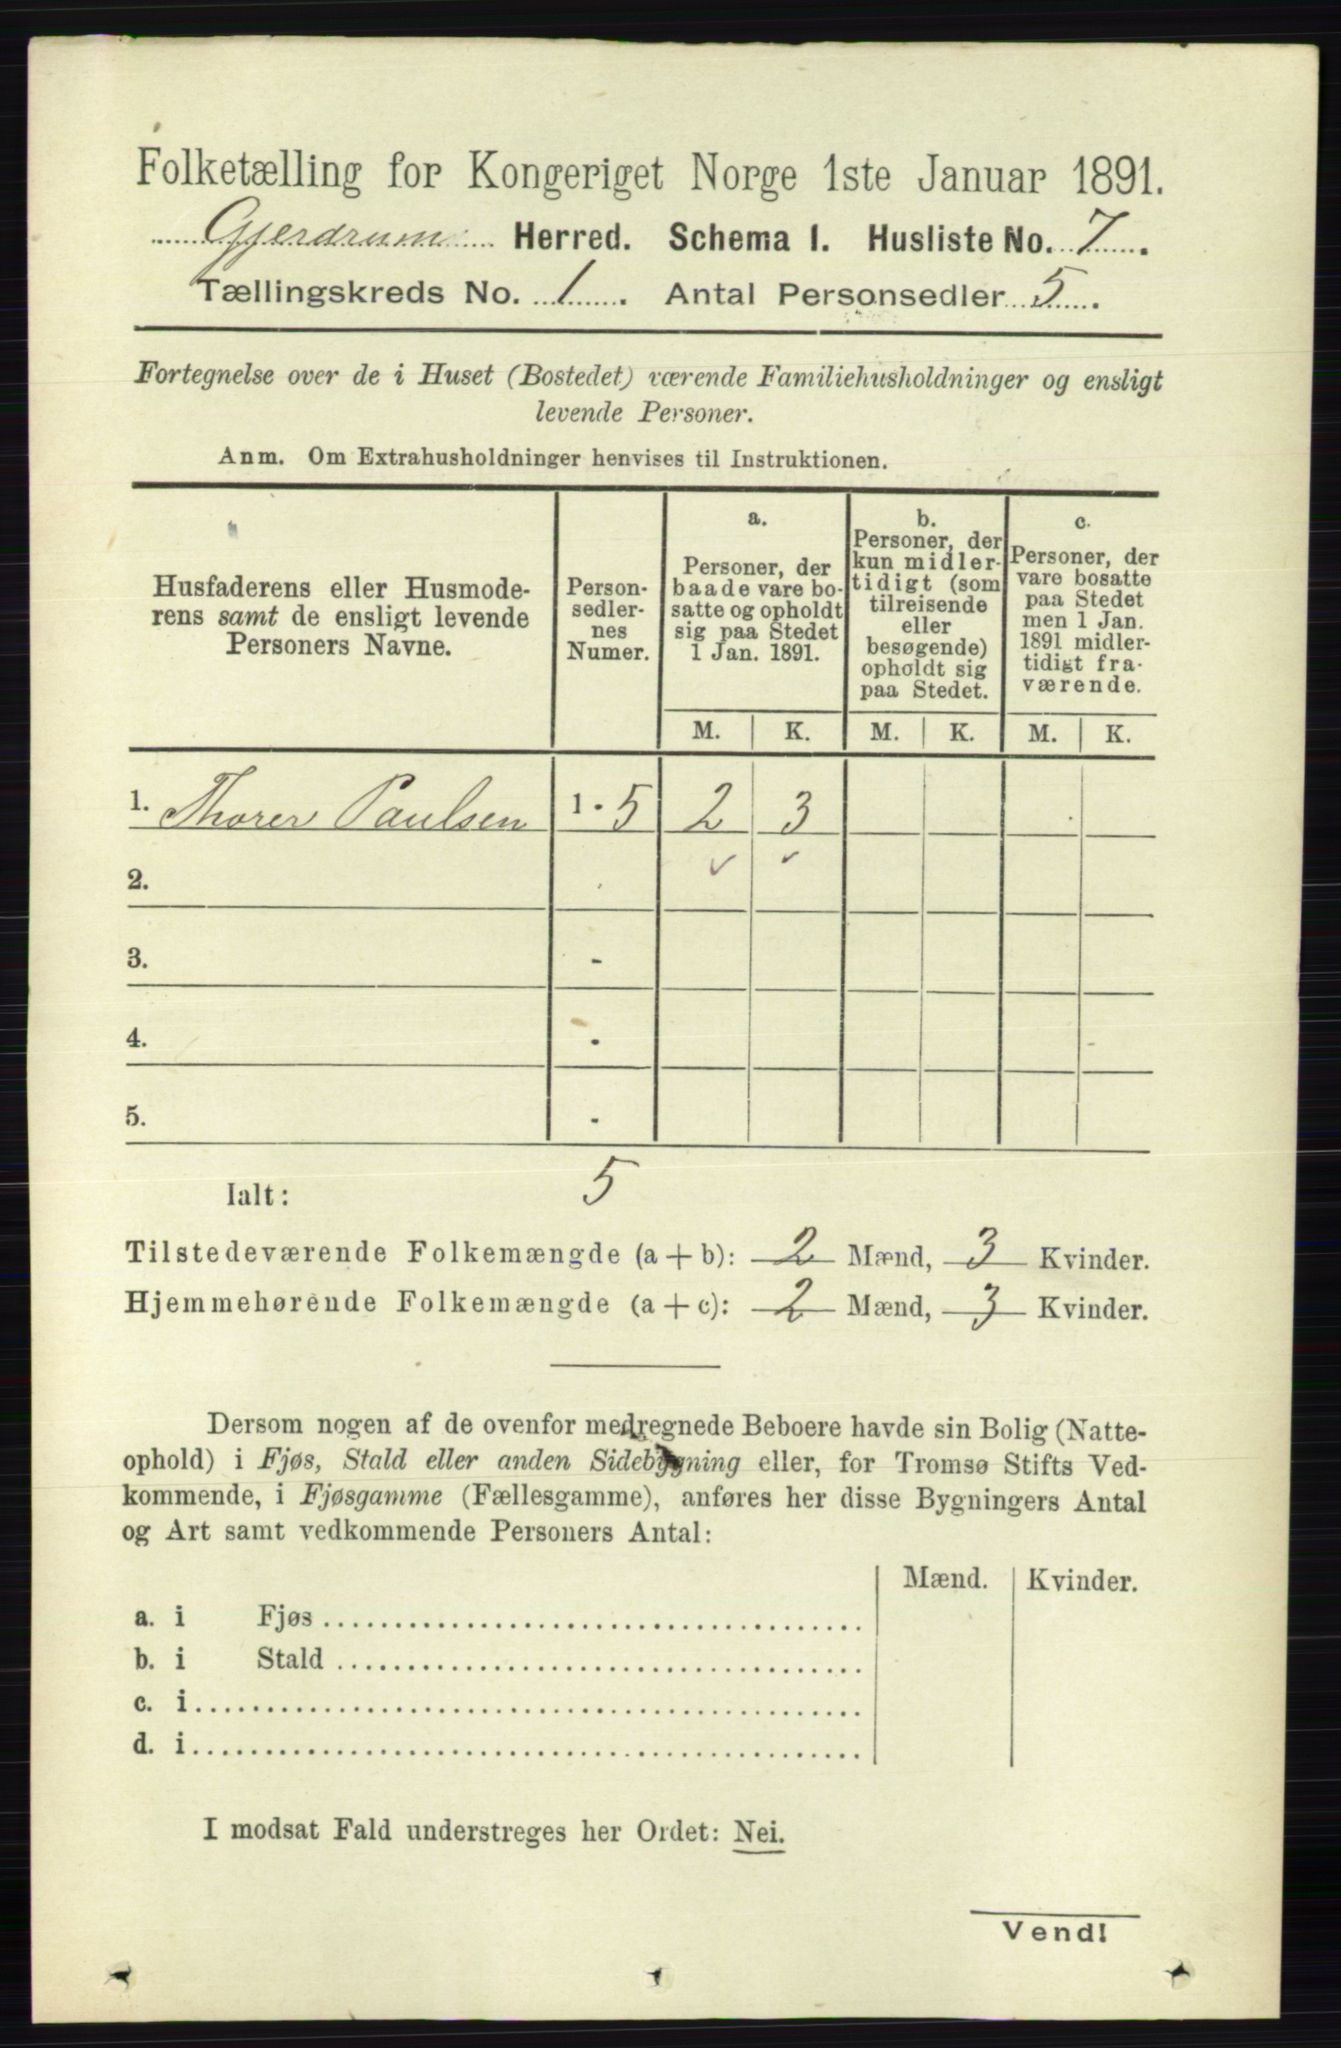 Folketælling for Kongeriget Norge 1ste Januar 1891.
Gjerdrum Herred. Schema I. Husliste No. 7.
Tællingskreds No. 1. Antal Personsedler 5.
Fortegnelse over de i Huset (Bostedet) værende Familiehusholdninger og ensligt
levende Personer.
Anm. Om Extrahusholdninger henvises til Instruktionen.
Husfaderens eller Husmode-
rens samt de ensligt levende
Personers Navne.
Person-
sedler-
nes
Numer.
a.
Personer, der
baade vare bo-
satte og opholdt
sig paa Stedet
1 Jan. 1891.
b.
Personer, der
kun midler-
tidigt (som
tilreisende
eller
besøgende)
opholdt sig
paa Stedet.
c.
Personer, der
vare bosatte
paa Stedet
men 1 Jan.
1891 midler-
tidigt fra-
værende.
M. K. M. K. M. K.
1. Thorer Paulsen 1 - 5 2 3
2.
3. -
4. -
5. -
Ialt: 5
Tilstedeværende Folkemængde (a + b): 2 Mænd, 3 Kvinder.
Hjemmehørende Folkemængde (a + c): 2 Mænd, 3 Kvinder.
Dersom nogen af de ovenfor medregnede Beboere havde sin Bolig (Natte-
ophold) i Fjøs, Stald eller anden Sidebygning eller, for Tromsø Stifts Ved-
kommende, i Fjøsgamme (Fællesgamme), anføres her disse Bygningers Antal
og Art samt vedkommende Personers Antal:
Mænd. Kvinder.
a. i Fjøs
b. i Stald
c. i
d. i
I modsat Fald understreges her Ordet: Nei.
Vend!